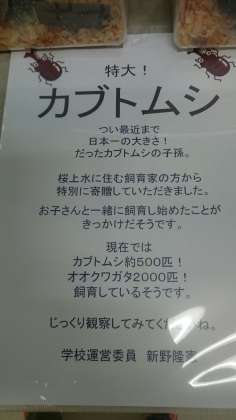 特大！
カブトムシ
つい最近まで
日本一の大きさ！
だったカブトムシの子孫。
桜上水に住む飼育家の方から
特別に寄贈していただきました。
お子さんと一緒に飼育し始めたことが
きっかけだそうです。
現在では
カブトムシ約500匹！
オオクワガタ2000匹！
飼育しているそうです。
じっくり観察してみてくださいね。
学校運営委員 新野隆